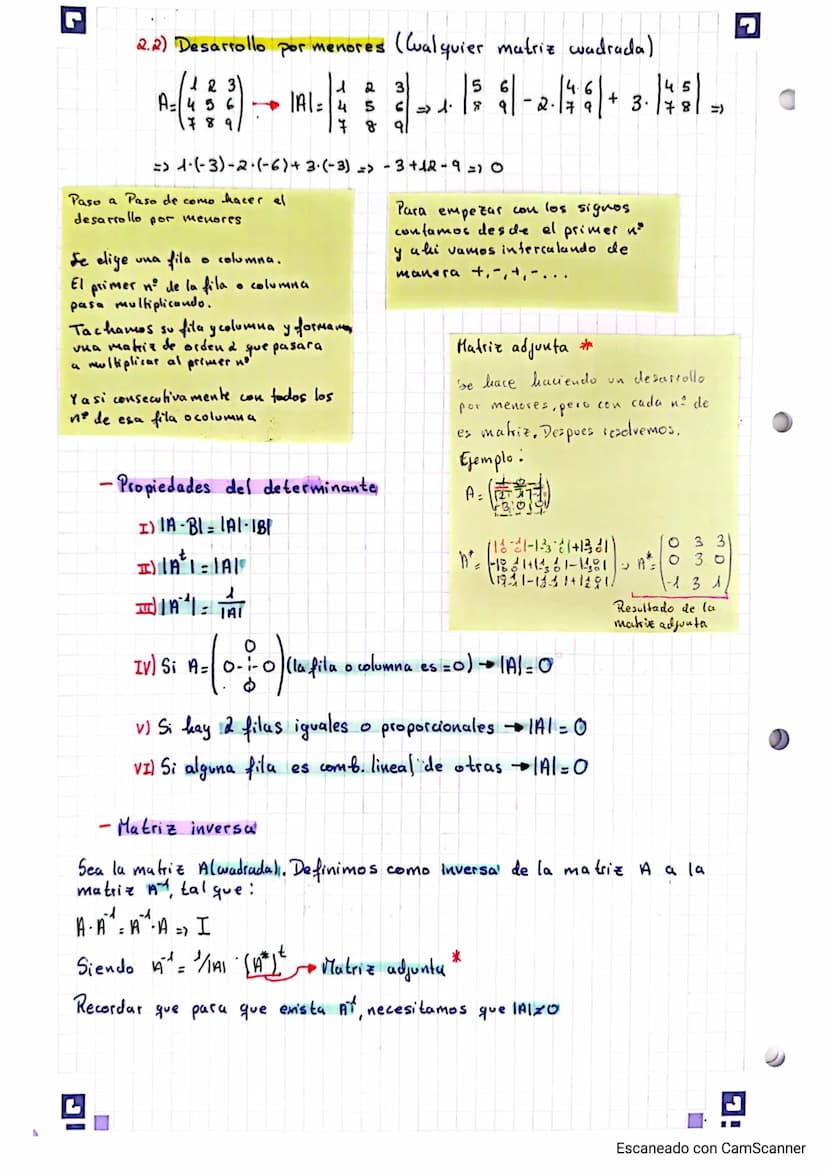 2.2) Desarrollo por menores (Cualquier matriz cuadrada)
A = (1 2 3 / 4 5 6 / 7 8 9) → |A| = |1 2 3 / 4 5 6 / 7 8 9| => 1 · |5 6 / 8 9| - 2 · |4 6 / 7 9| + 3 · |4 5 / 7 8| =>
=> 1·(-3)-2·(-6)+3·(-3) => -3+12-9 => 0
Paso a Paso de como hacer el
desarrollo por menores
Se elige una fila o columna.
El primer nº de la fila o columna
pasa multiplicando.
Tachamos su fila y columna y formamos
una matriz de orden 2 que pasara
a multiplicar al primer nº
Y asi consecutivamente con todos los
nº de esa fila o columna
Para empezar con los signos
contamos desde el primer nº
y ahi vamos intercalando de
manera +,-,+,-...
Matriz adjunta *
Se hace haciendo un desarrollo
por menores, pero con cada nº de
es matriz. Despues resolvemos.
Ejemplo:
A =
A* = (0 3 3 / 0 3 0 / -1 3 1)
Resultado de la
matriz adjunta
- Propiedades del determinante
I) |A·B| = |A|·|B|
II) |Aᵗ| = |A|
III) |A⁻¹| = 1/|A|
IV) Si A = (0 / 0-¦-0 / 0) (la fila o columna es =0) → |A| = 0
V) Si hay 2 filas iguales o proporcionales → |A| = 0
VI) Si alguna fila es comb. lineal de otras → |A| = 0
- Matriz inversa
Sea la matriz A(cuadrada). Definimos como inversa de la matriz A a la
matriz A⁻¹, tal que:
A·A⁻¹ = A⁻¹·A => I
Siendo A⁻¹ = 1/|A| · (A*)ᵗ → Matriz adjunta *
Recordar que para que exista A⁻¹, necesitamos que |A|≠0
Escaneado con CamScanner